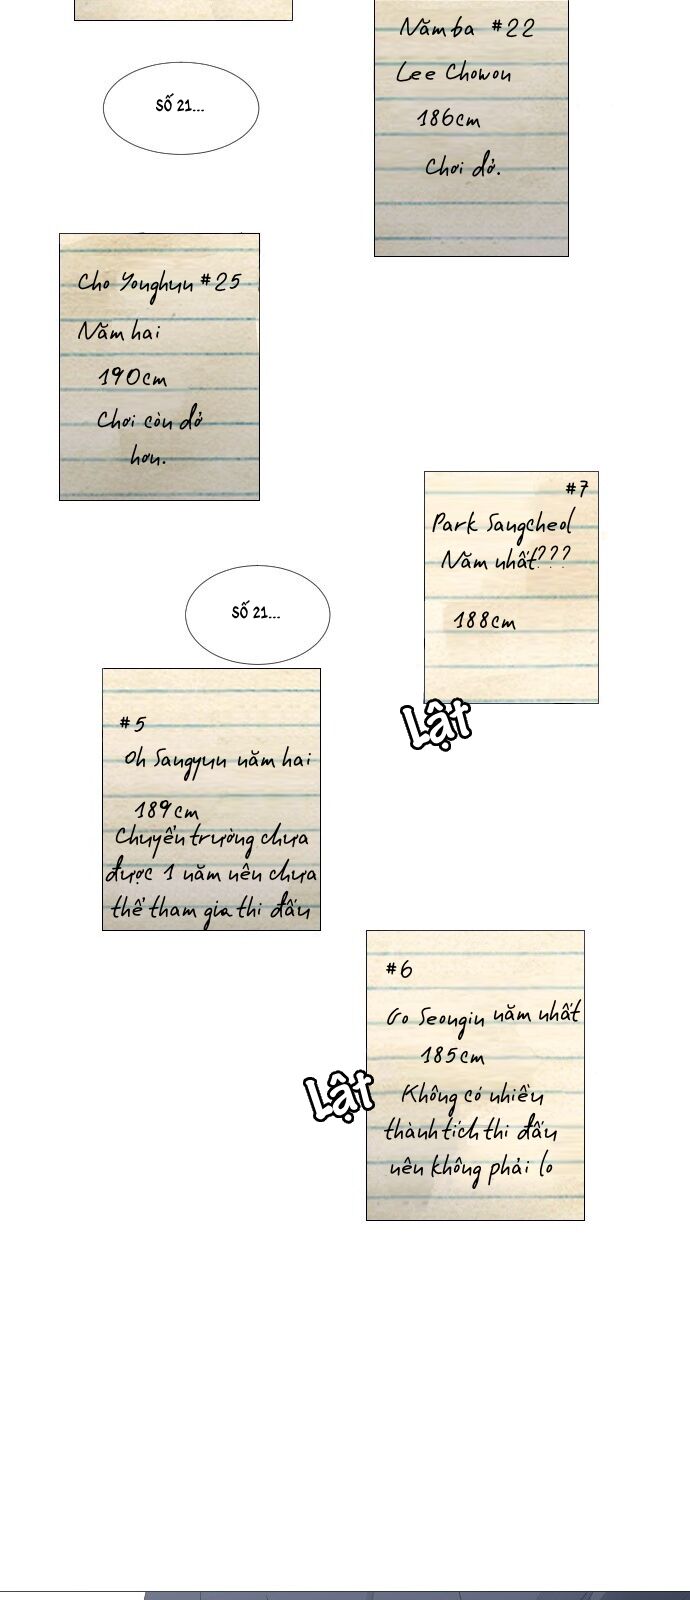 Năm ba #22
Lee Chowon
186cm
Chơi dở.
SỐ 21...
Cho Yonghun #25
Năm hai
190cm
Chơi còn dở
hơn.
#7
Park Sangcheol
Năm nhất???
188cm
SỐ 21...
Lật
#5
Oh Sangyun năm hai
189cm
Chuyển trường chưa
được 1 năm nên chưa
thể tham gia thi đấu
#6
Go Seongin năm nhất
185cm
Không có nhiều
thành tích thi đấu
nên không phải lo
Lật